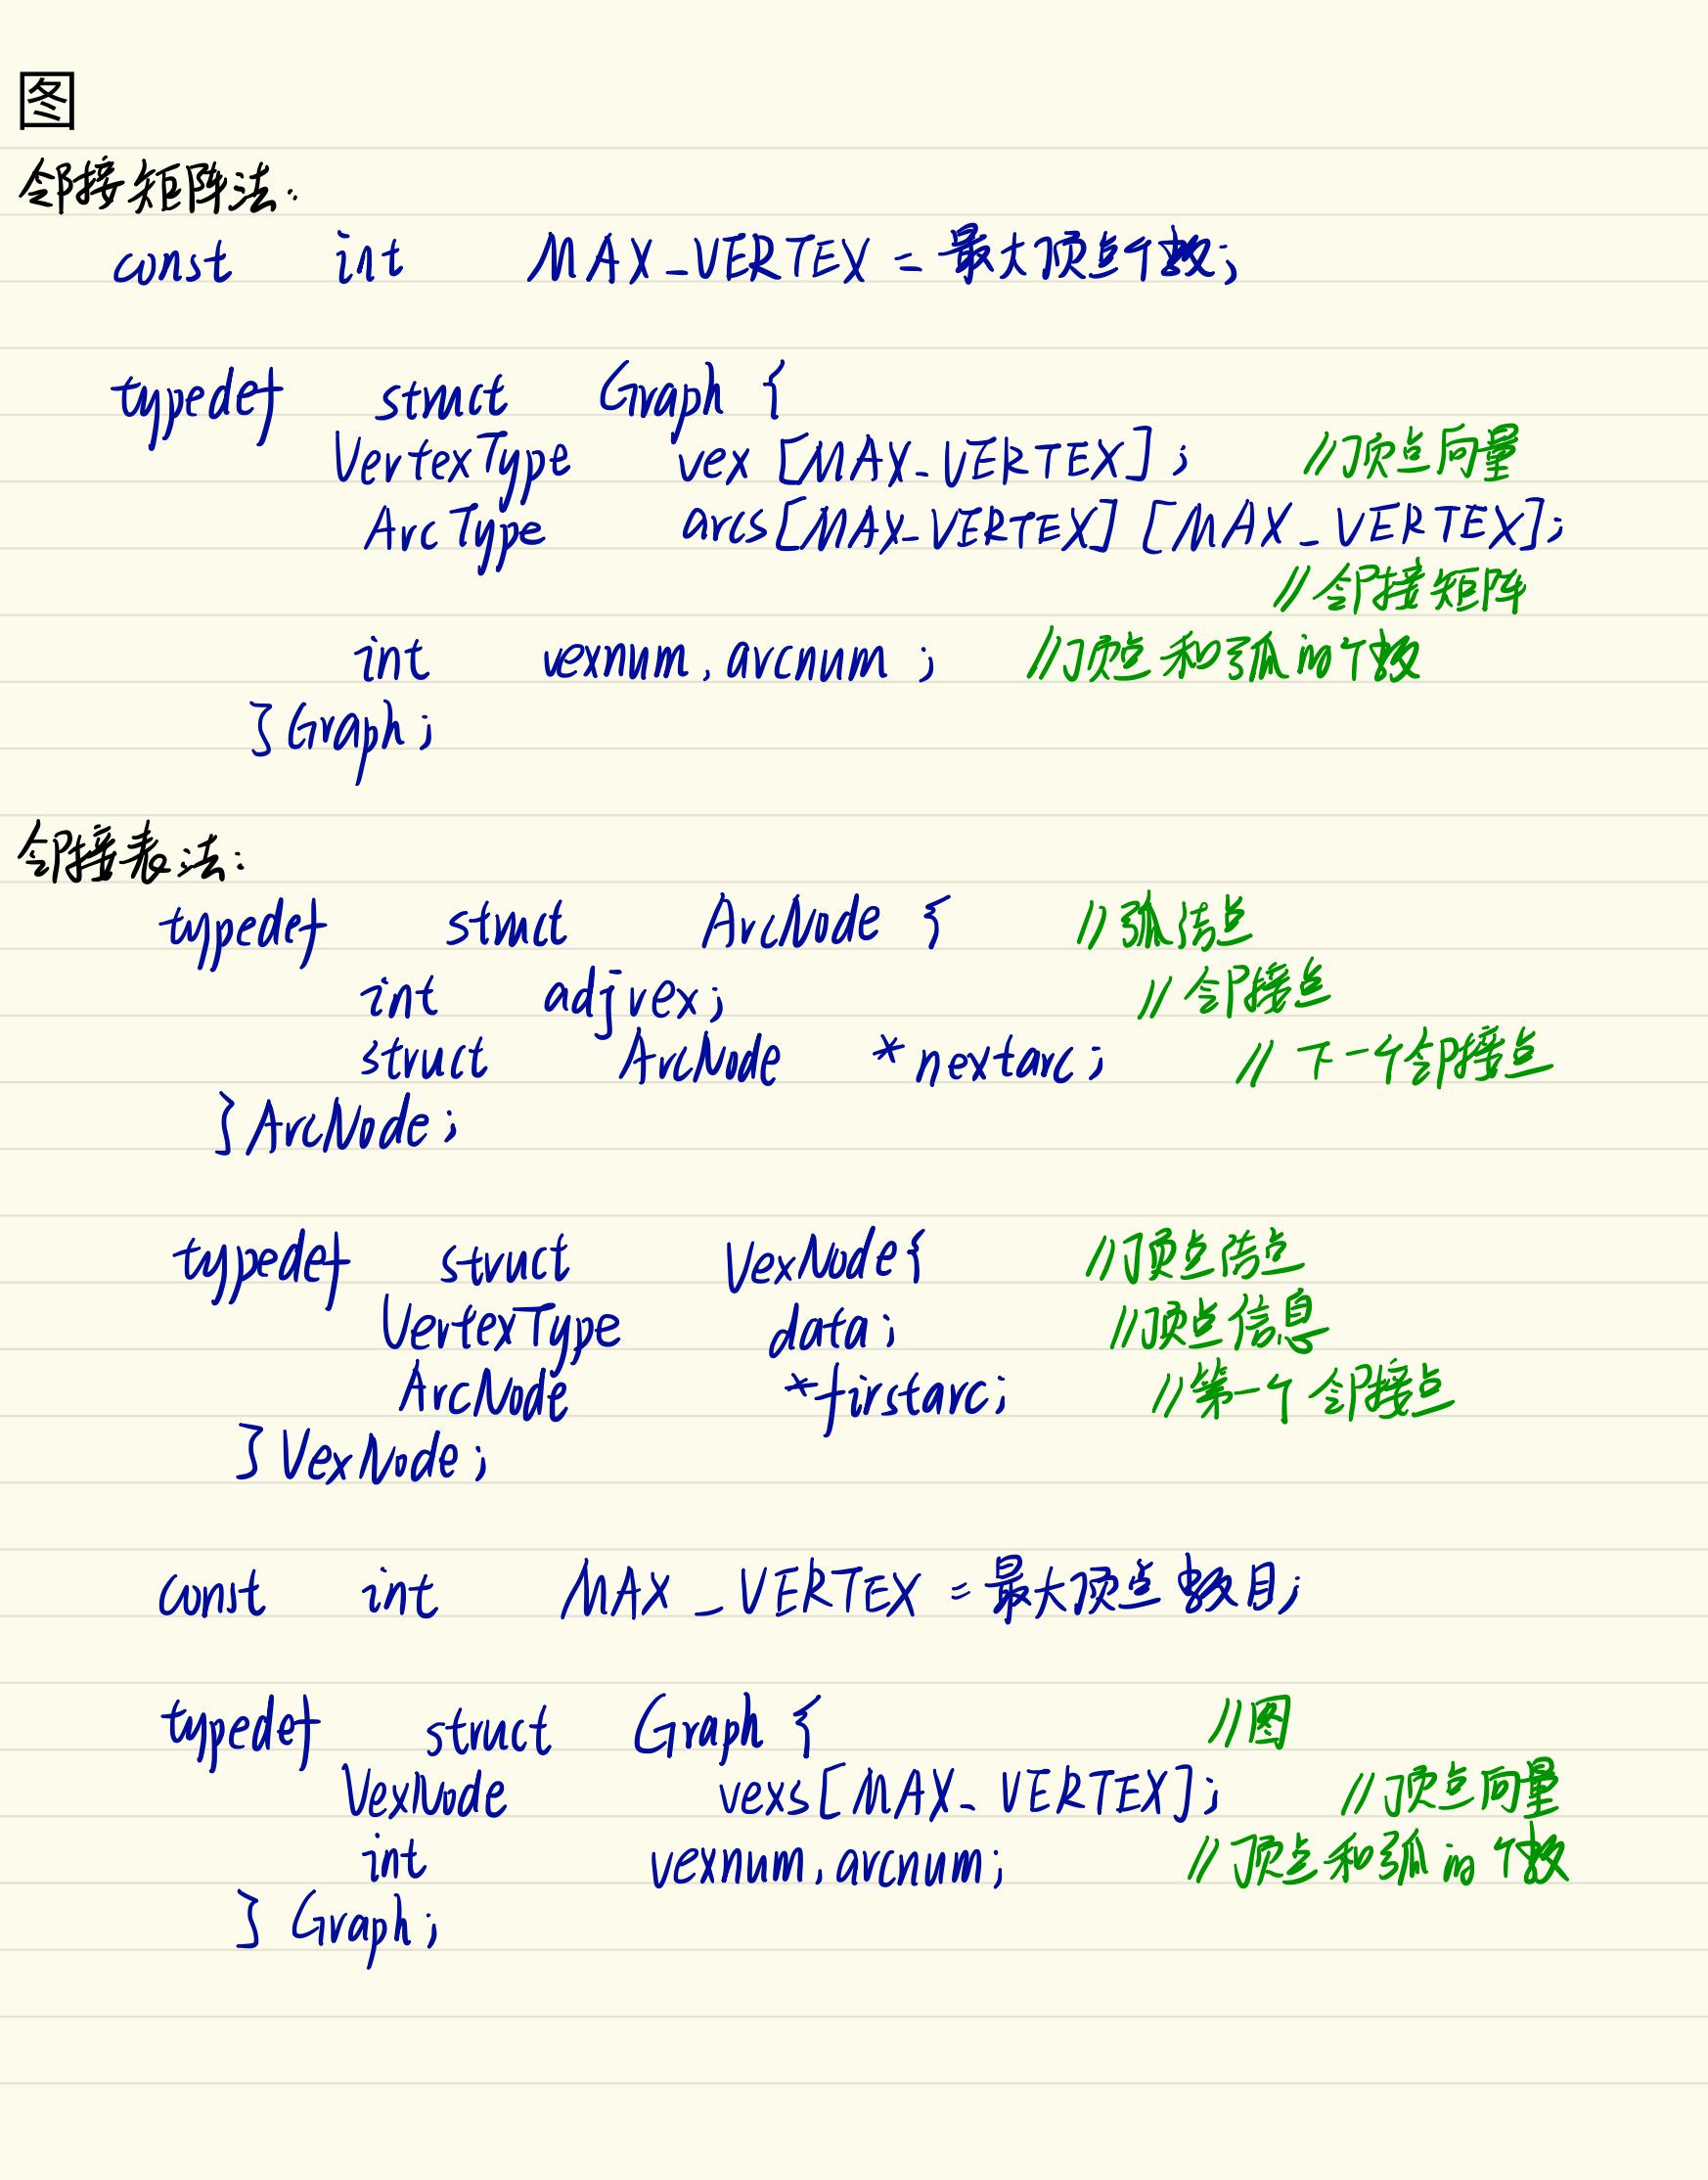 图
邻接矩阵法:
const int MAX_VERTEX = 最大顶点个数;
typedef struct Graph {
VertexType vex [MAX_VERTEX]; //顶点向量
ArcType arcs[MAX_VERTEX] [MAX_VERTEX];
//邻接矩阵
int vexnum, arcnum; //顶点和弧的个数
} Graph;
邻接表法:
typedef struct ArcNode { //弧结点
int adjvex; //邻接点
struct ArcNode *nextarc; //下一个邻接点
} ArcNode;
typedef struct VexNode{ //顶点结点
VertexType data; //顶点信息
ArcNode *firstarc; //第一个邻接点
} VexNode;
const int MAX_VERTEX = 最大顶点数目;
typedef struct Graph { //图
VexNode vexs[MAX_VERTEX]; //顶点向量
int vexnum, arcnum; //顶点和弧的个数
} Graph;